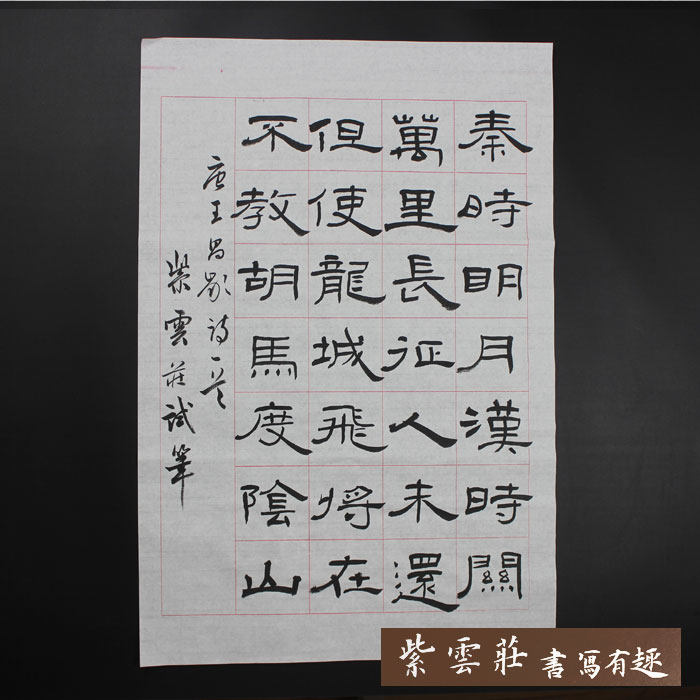 秦時明月漢時關
萬里長征人未還
但使龍城飛將在
不教胡馬度陰山
唐王昌齡詩一首
紫雲莊試筆
紫雲莊 書寫有趣